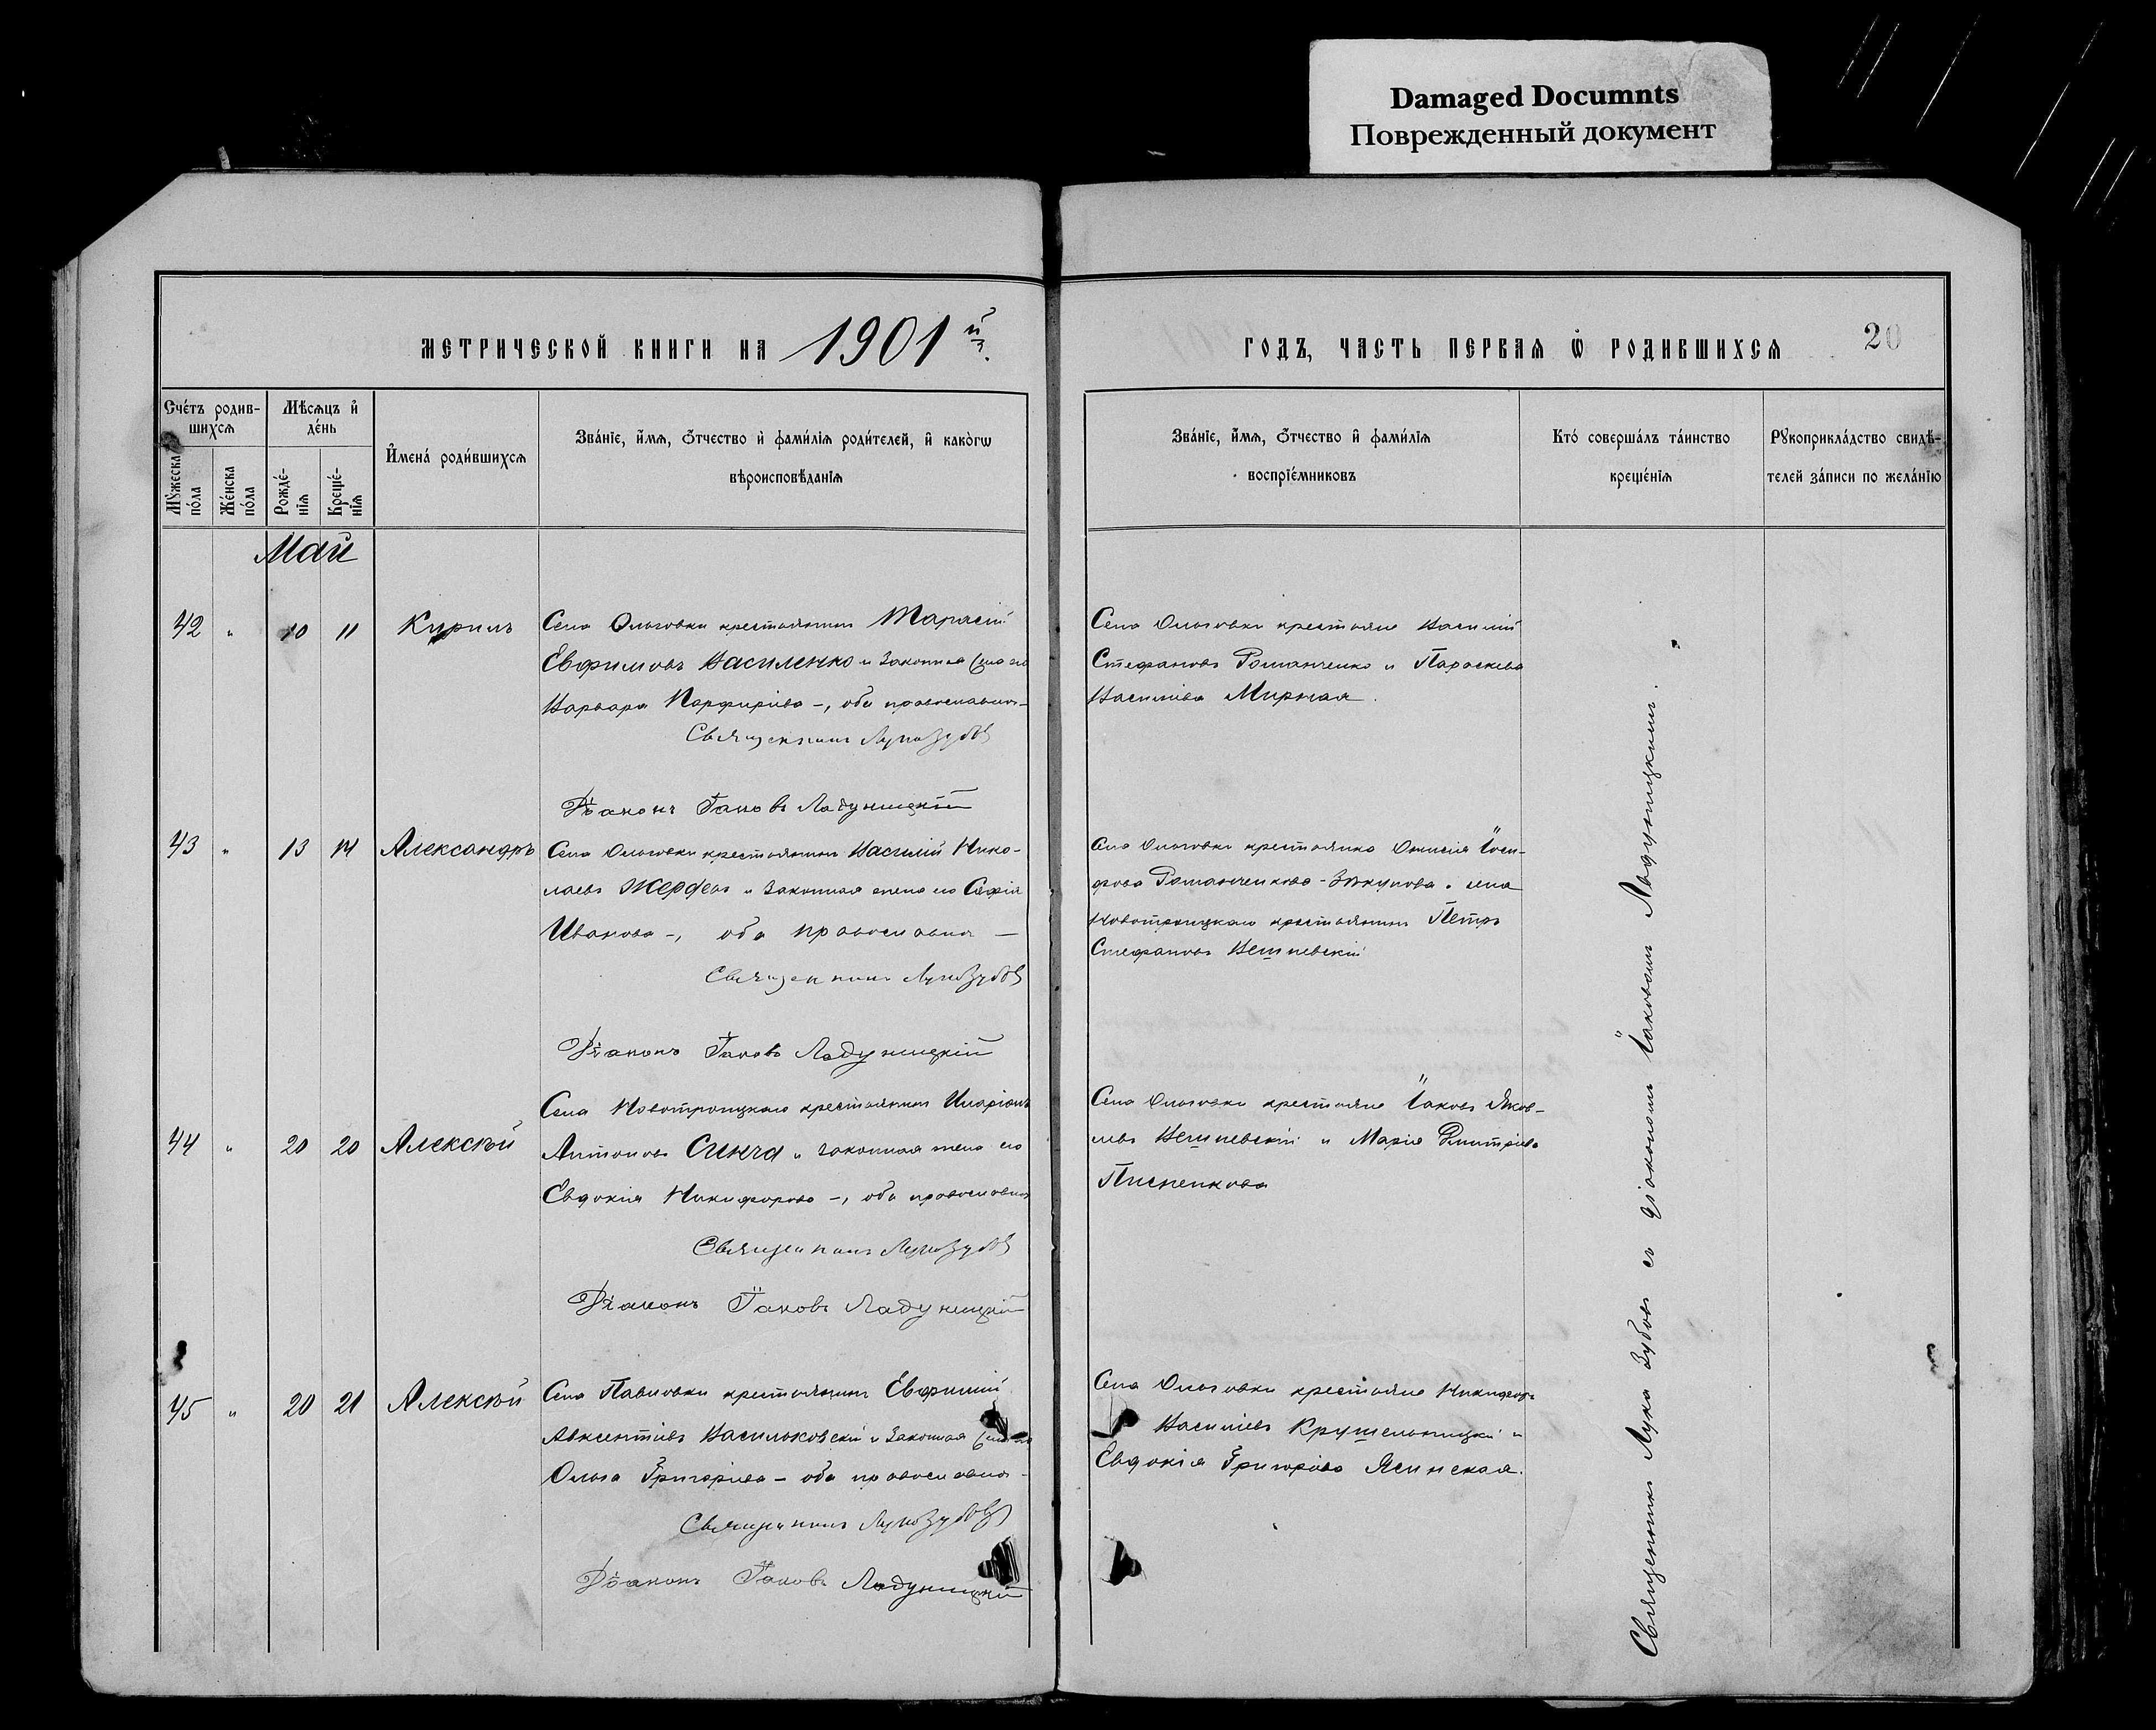 Damaged Documnts
Поврежденный документ
МЕТРИЧЕСКОЙ КНИГИ НА 1901 й г.
ГОДЪ, ЧАСТЬ ПЕРВАЯ Ѡ РОДИВШИХСЯ
20
Счéтъ родив-
шихсѧ
Мѣсѧцъ и҆
дéнь
Мꙋ́жеска
по́ла
Же́нска
по́ла
Рожде́-
нїѧ
Креще́-
нїѧ
И҆мена́ роди́вшихсѧ
Зва́нїе, и҆́мѧ, ѻ҆́тчество и҆ фами́лїѧ роди́телей, и҆ како́гѡ
вѣроисповѣ́данїѧ
Зва́нїе, и҆́мѧ, ѻ҆́тчество и҆ фами́лїѧ
воспрїе́мниковъ
Кто́ соверша́лъ та́инство
креще́нїѧ
Рꙋкоприкла́дство свидѣ́-
телей за́писи по жела́нїю
Май
42 " 10 11 Кирилъ
Села Ольговки крестьянинъ Тарасій
Евфимовъ Василенко и законная жена его
Варвара Парфиріева –, оба православные
Священникъ Лука Зубовъ
Діаконъ Іаковъ Ладуницкій
Села Ольговки крестьяне Василій
Стефановъ Романченко и Параскева
Василіева Мирная.
43 " 13 14 Александръ
Села Ольговки крестьянинъ Василій Нико-
лаевъ Жердевъ и законная жена его Софія
Иванова –, оба православные –
Священникъ Лука Зубовъ
Діаконъ Іаковъ Ладуницкій
Села Ольговки крестьянка Онисія Іоси-
фова Романченкова- и села
Новотроицкаго крестьянинъ Петръ
Стефановъ Вешневскій
44 " 20 20 Алексѣй
Села Новотроицкаго крестьянинъ Иларіонъ
Антоновъ Синча и законная жена его
Евдокія Никифорова –, оба православные
Священникъ Лука Зубовъ
Діаконъ Іаковъ Ладуницкій
Села Ольговки крестьяне Іаковъ Яков-
левъ Вешневскій и Марія Димитріева
Писненкова
45 " 20 21 Алексѣй
Села Павловки крестьянинъ Евфимій
Авксентіевъ Васильковскій и законная жена его
Ольга Григоріева – оба православные –
Священникъ Лука Зубовъ
Діаконъ Іаковъ Ладуницкій
Села Ольговки крестьяне Никифоръ
Василіевъ Крушельницкій и
Евдокія Григоріева Ясинская.
Священникъ Лука Зубовъ съ діакономъ Іаковомъ Ладуницкимъ.